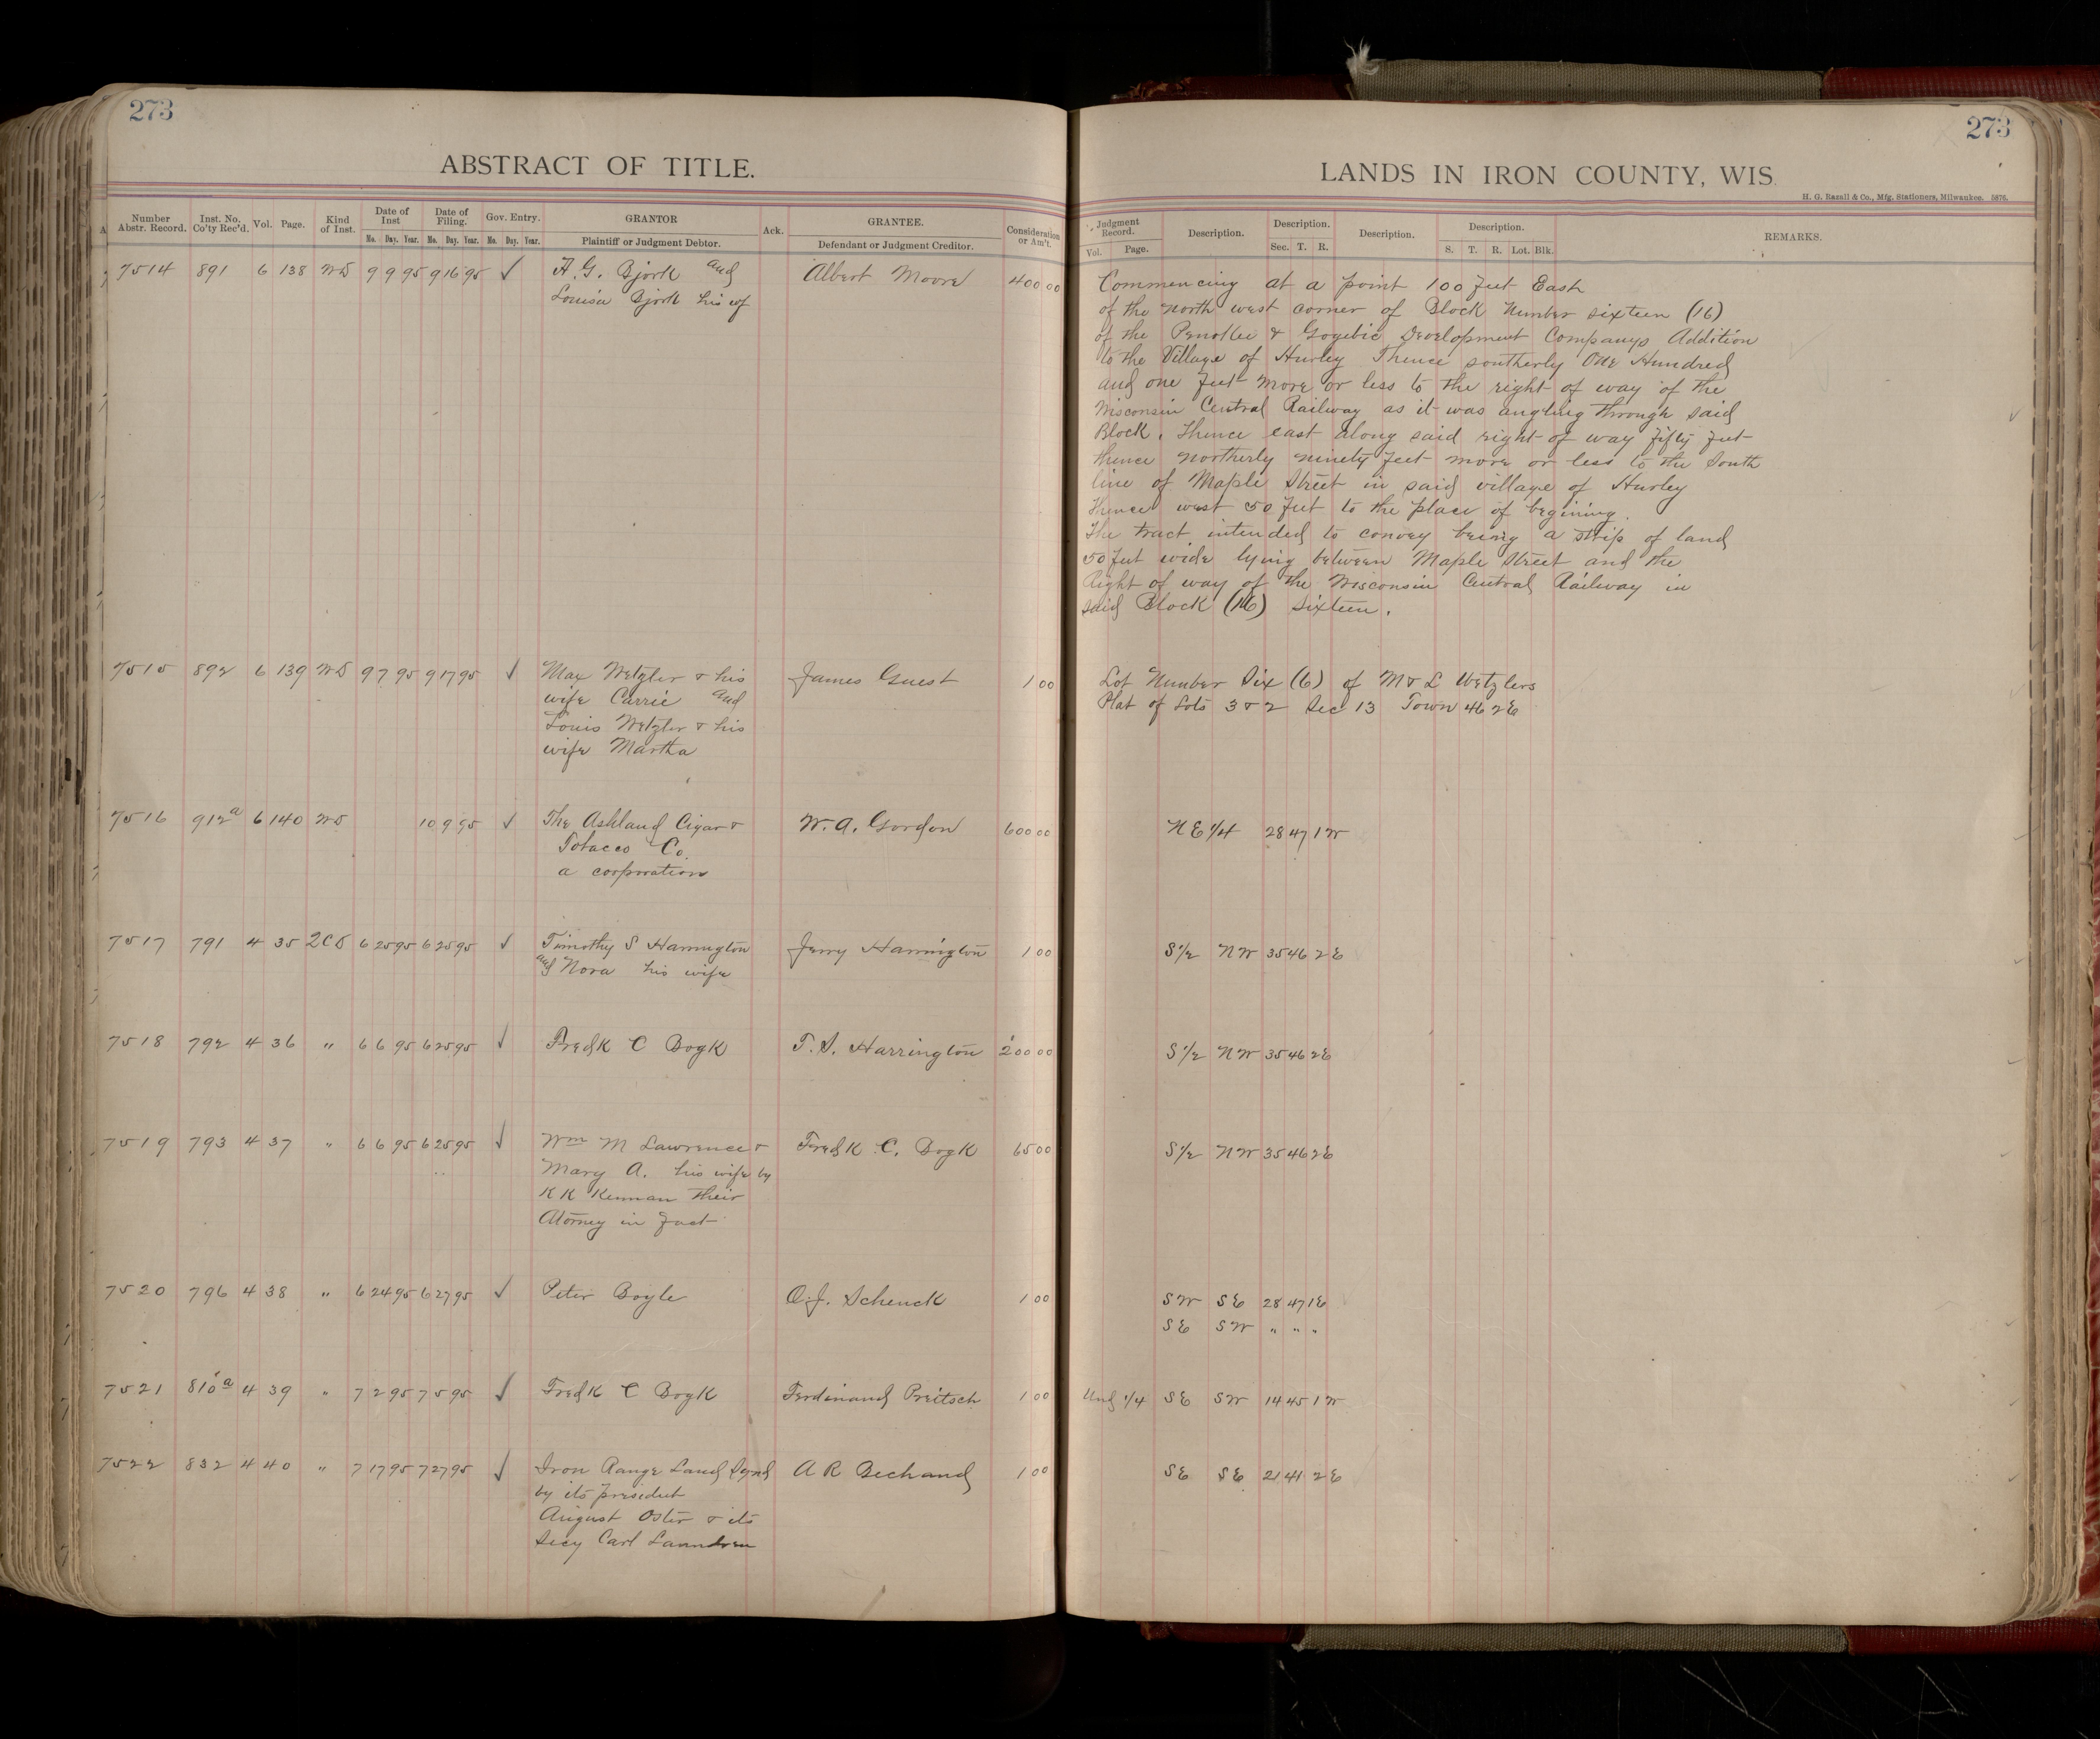 273
ABSTRACT OF TITLE.
Number Abstr. Record. Inst. No. Co'ty Rec'd. Vol. Page. Kind of Inst. Date of Inst Mo. Day. Year. Date of Filing. Mo. Day. Year. Gov. Entry. Mo. Day. Year. GRANTOR Plaintiff or Judgment Debtor. Ack. GRANTEE. Defendant or Judgment Creditor. Consideration or Am't.
7514 891 6 138 WD 9 9 95 9 16 95 ✓ A. G. Bjork and Albert Moore 400 00
Louisa Bjork his wf
7515 892 6 139 WD 9 7 95 9 17 95 ✓ Max Wetzler & his James Guest 1 00
wife Carrie and
Louis Wetzler & his
wife Martha
7516 912a 6 140 WD 10 9 95 ✓ The Ashland Cigar & W. A. Gordon 600 00
Tobacco Co.
a corporation
7517 791 4 35 2CD 6 25 95 6 25 95 ✓ Timothy S Harrington Jerry Harrington 1 00
and Nora his wife
7518 792 4 36 " 6 6 95 6 25 95 ✓ Fredk C Bogk T. S. Harrington 200 00
7519 793 4 37 " 6 6 95 6 25 95 ✓ Wm M Lawrence & Fredk C. Bogk 65 00
Mary A. his wife by
K K Kennan their
Atorney in fact
7520 796 4 38 " 6 24 95 6 27 95 ✓ Peter Boyle O. J. Schenck 1 00
7521 810a 4 39 " 7 2 95 7 5 95 ✓ Fredk C Bogk Ferdinand Preitsch 1 00
7522 832 4 40 " 7 17 95 7 27 95 ✓ Iron Range Land Synd A R Bechand 1 00
by its president
August Oster & its
Secy Carl
273
LANDS IN IRON COUNTY, WIS.
H. G. Razall & Co., Mfg. Stationers, Milwaukee. 5876.
Judgment Record. Vol. Page. Description. Description. Sec. T. R. Description. Description. S. T. R. Lot. Blk. REMARKS.
Commencing at a point 100 feet East
of the north west corner of Block Number sixteen (16)
of the Penokee & Gogebic Development Companys Addition
to the Village of Hurley Thence southerly One Hundred
and one feet more or less to the right of way of the
Wisconsin Central Railway as it was angling through said
Block. Thence east along said right of way fifty feet
thence northerly ninety feet more or less to the South
line of Maple Street in said village of Hurley
Thence west 50 feet to the place of begining.
The tract intended to convey being a strip of land
50 feet wide lying between Maple Street and the
Right of way of the Wisconsin Central Railway in
said Block (16) sixteen.
Lot Number Six (6) of M & L Wetzlers
Plat of Lots 3 & 2 Sec 13 Town 46 2E
NE 1/4 28 47 1W
S 1/2 NW 35 46 2E
S 1/2 NW 35 46 2E
S 1/2 NW 35 46 2E
SW SE 28 47 1E
SE SW " " "
Und 1/4 SE SW 14 45 1W
SE SE 21 41 2E